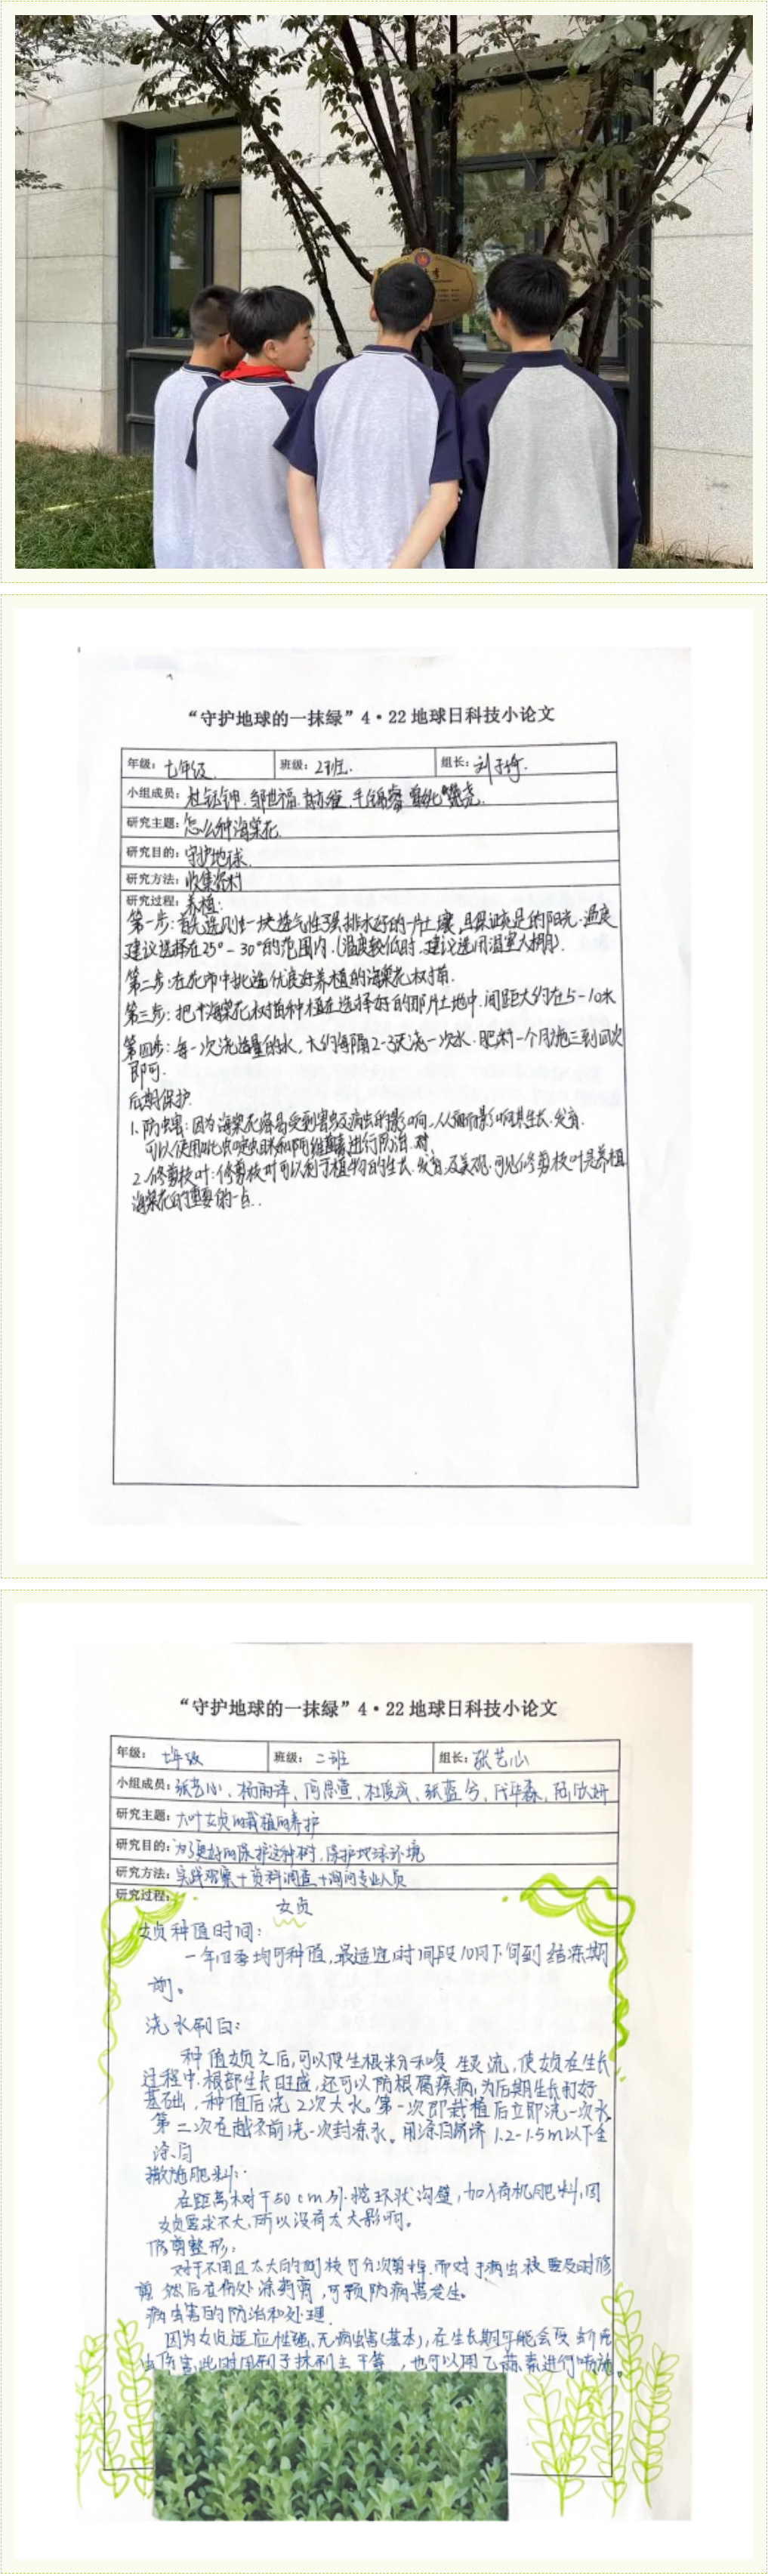 “守护地球的一抹绿”4·22地球日科技小论文
年级：七年级 班级：2班 组长：刘子
小组成员：
研究主题：怎么种海棠花
研究目的：守护地球
研究方法：收集资料
研究过程：养植：
第一步：首先选则一块透气性强排水好的一片土壤，且保证充足的阳光.温度
建议选择在25°-30°的范围内.(温度较低时，建议选用温室大棚).
第二步：在花市中挑选优良好养植的海棠花树苗.
第三步：把海棠花树苗种植在选择好的那片土地中，间距大约在5-10米
第四步：每一次浇适量的水，大约每隔2-3天浇一次水.肥料一个月施三到四次
即可.
后期保护
1.防虫害：因为海棠花容易受到害虫及病虫的影响，从而影响其生长.发育.
可以使用吡虫啉和阿维菌素进行防治.
2.修剪枝叶：修剪枝叶可以利于植物的生长.发育.及美观.可见修剪枝叶是养植
海棠花的重要的一点..
“守护地球的一抹绿”4·22地球日科技小论文
年级：七年级 班级：二班 组长：张艺心
小组成员：张艺心、杨雨泽、
研究主题：大叶女贞的栽植的养护
研究目的：为了更好的保护这种树，保护地球环境
研究方法：实践观察+资料调查+询问专业人员
研究过程：
女贞
女贞种值时间：
一年四季均可种值，最适宜时间段10月下旬到结冻期
前。
浇水刷白：
种值女贞之后，可以使生根粉和 灵流，使女贞在生长
过程中，根部生长旺盛，还可以防根腐疾病，为后期生长打好
基础，种值后浇2次大水。第一次即栽植后立即浇一次水，
第二次在越冬前浇一次封冻水。用涂白剂将1.2-1.5m以下全
涂白
撒施肥料：
在距离树干50cm外.挖环状沟壑，加入有机肥料，因
女贞要求不大，所以没有太大影响。
修剪整形：
对于不用且太大的侧枝可分次剪掉.而对于病虫枝要及时修
剪 然后在伤处涂药膏，可预防病害发生。
病虫害的防治和处理
因为女贞适应性强、无病虫害(基本)，在生长期可能会受到
虫伤害，此时用刷子抹刷主干等，也可以用乙蒜素进行喷施。